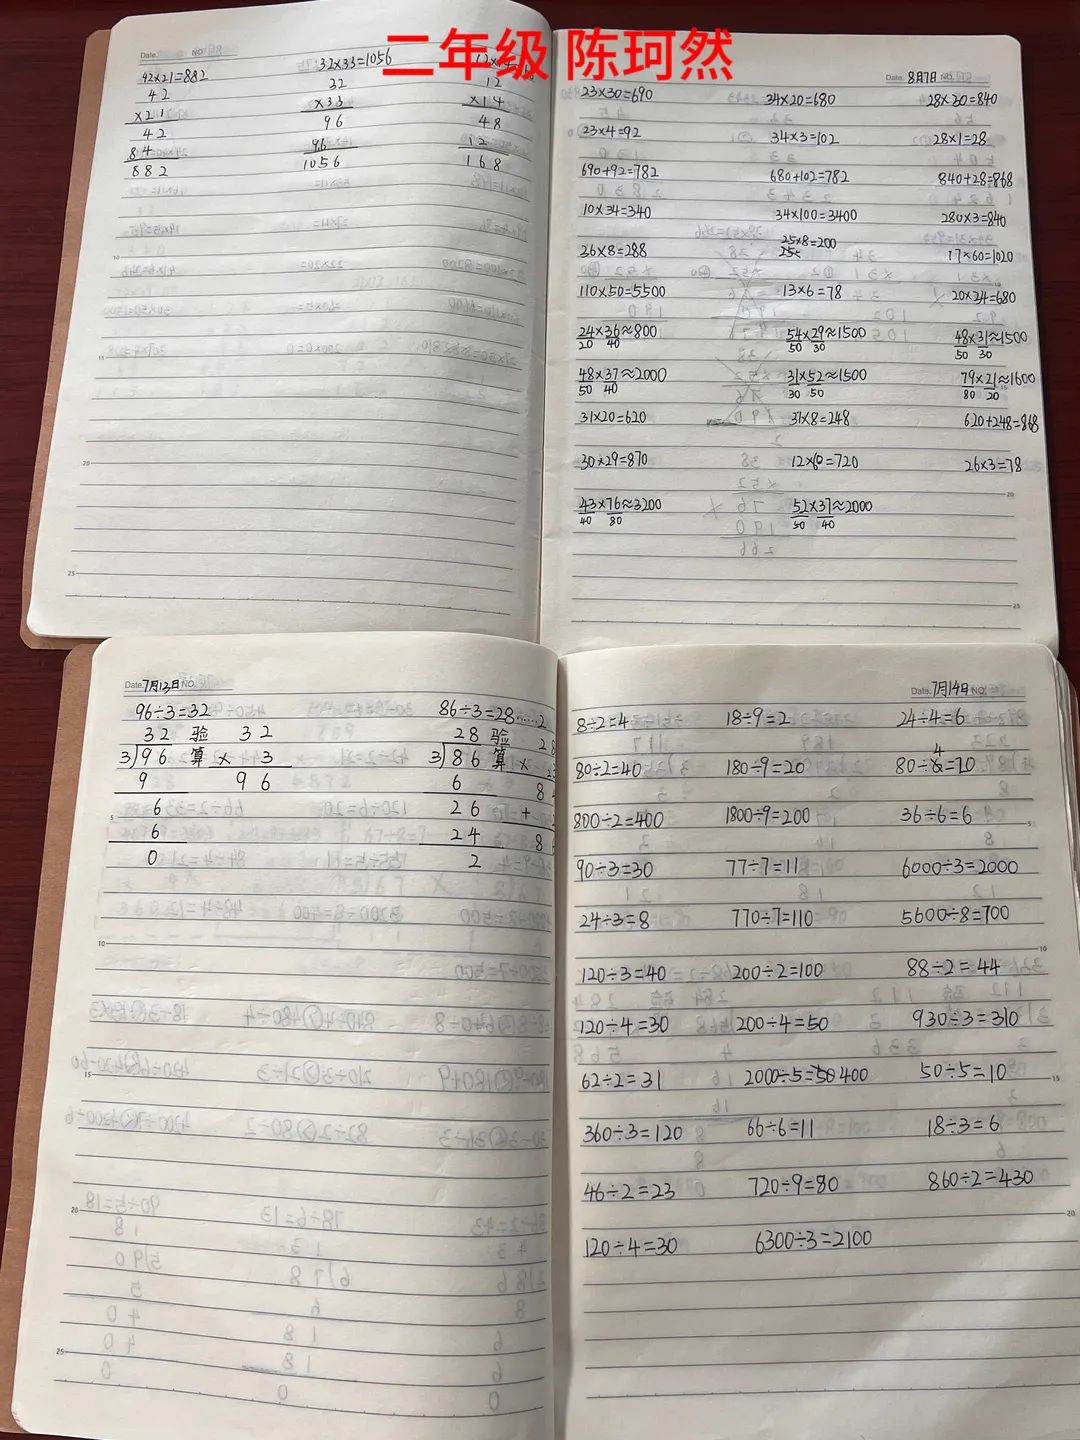 二年级 陈珂然
Date. NO.
42×21=882 32×33=1056
42 32 12
×21 ×33 ×14
42 96 48
84 96 12
882 1056 168
Date. 8月7日 NO.
23×30=690 34×20=680 28×30=840
23×4=92 34×3=102 28×1=28
690+92=782 680+102=782 840+28=868
10×34=340 34×100=3400 280×3=840
25×8=200
36×8=288 25× 17×60=1020
110×50=5500 13×6=78 20×34=680
24×36≈800 54×29≈1500 48×31≈1500
20 40 50 30 50 30
48×37≈2000 31×52≈1500 79×21≈1600
50 40 30 50 80 20
31×20=620 31×8=248 620+248=868
30×29=870 12×60=720 26×3=78
43×76≈3200 52×37≈2000
40 80 50 40
Date. 7月13日 NO.
96÷3=32 86÷3=28……2
32 验 32 28 验 28
3)96 算 × 3 3)86 算 ×
9 96 6 8
6 26 +
6 24 8
0 2
Date. 7月14日 NO.
8÷2=4 18÷9=2 24÷4=6
4
80÷2=40 180÷9=20 80÷8=20
800÷2=400 1800÷9=200 36÷6=6
90÷3=30 77÷7=11 6000÷3=2000
24÷3=8 770÷7=110 5600÷8=700
120÷3=40 200÷2=100 88÷2=44
120÷4=30 200÷4=50 930÷3=310
62÷2=31 2000÷5=50 400 50÷5=10
360÷3=120 66÷6=11 18÷3=6
46÷2=23 720÷9=80 860÷2=430
120÷4=30 6300÷3=2100